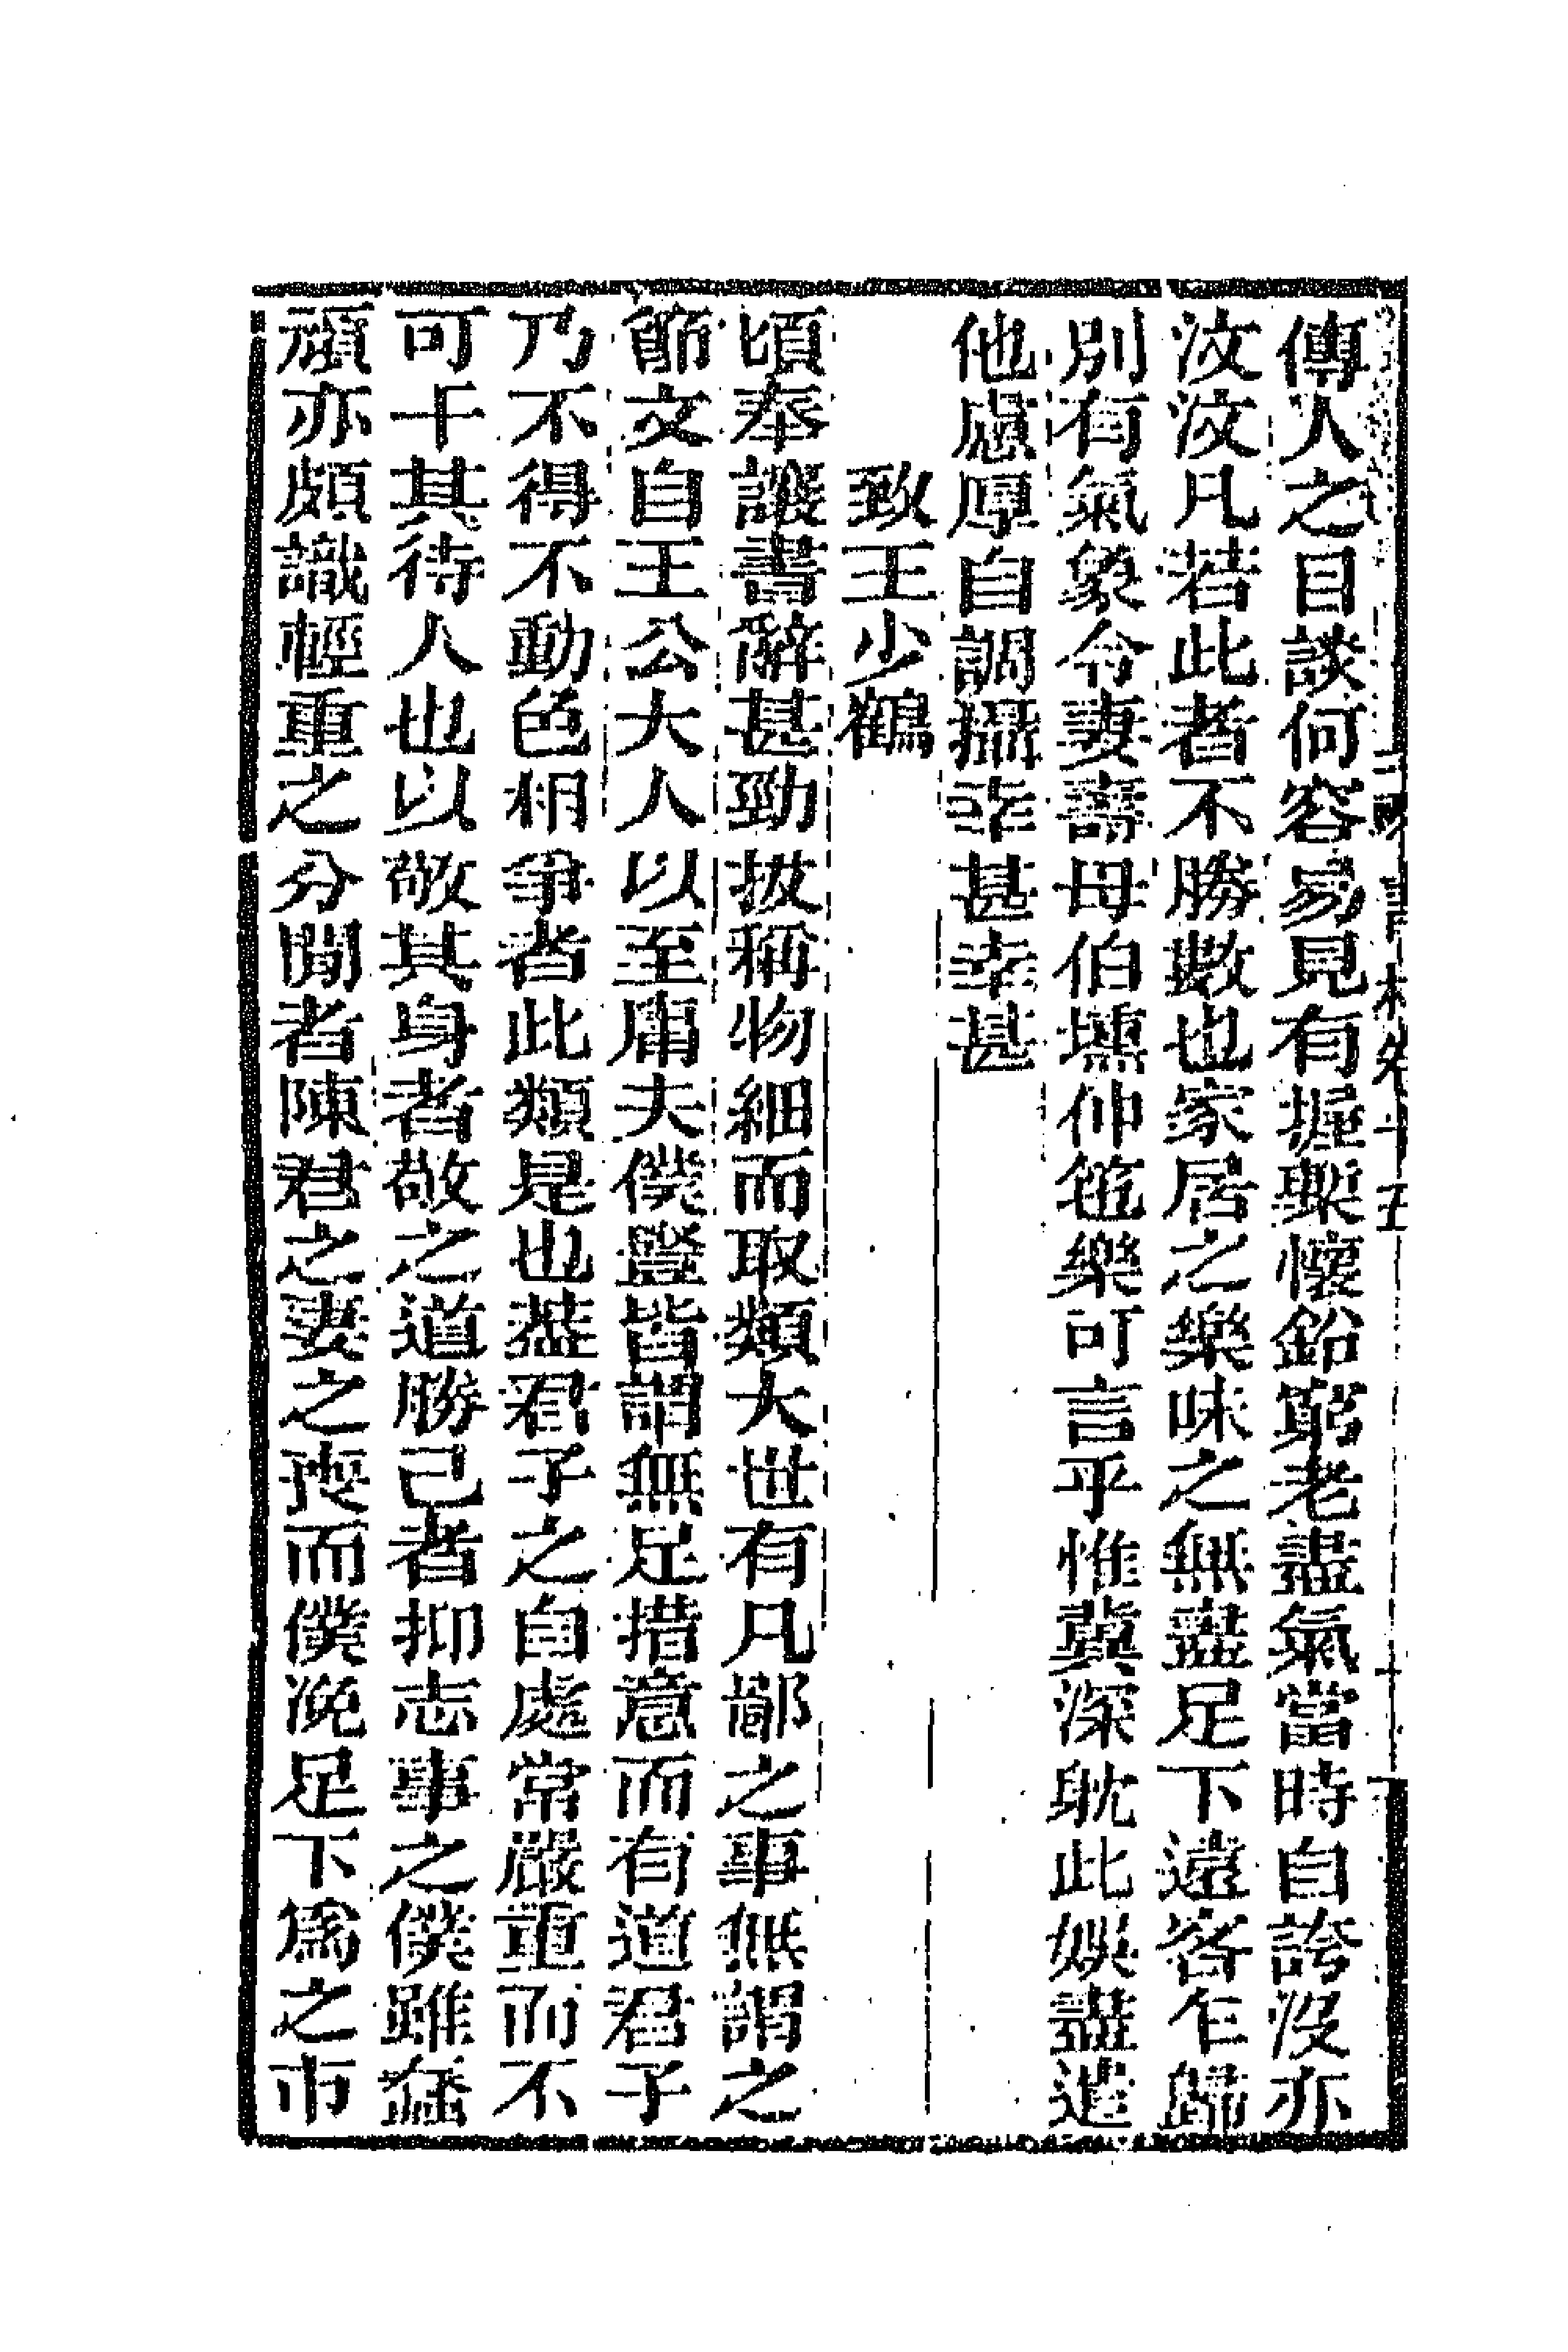 傳人之目談何容易見有握槧懷鉛窮老盡氣當時自誇沒亦
汶汶凡若此者不勝數也家居之樂味之無盡足下遠客乍歸
別有氣象令妻壽母伯壎仲篪樂可言乎惟冀深耽此娛盡遣
他慮厚自調攝幸甚幸甚
致王少鶴
頃奉譏書辭甚勁拔稱物細而取類大世有凡鄙之事無謂之
節文自王公大人以至庸夫僕豎皆謂無足措意而有道君子
乃不得不動色相爭者此類是也蓋君子之自處常嚴重而不
可干其待人也以敬其身者敬之道勝己者抑志事之僕雖
頑亦頗識輕重之分閒者陳君之妻之喪而僕浼足下爲之市